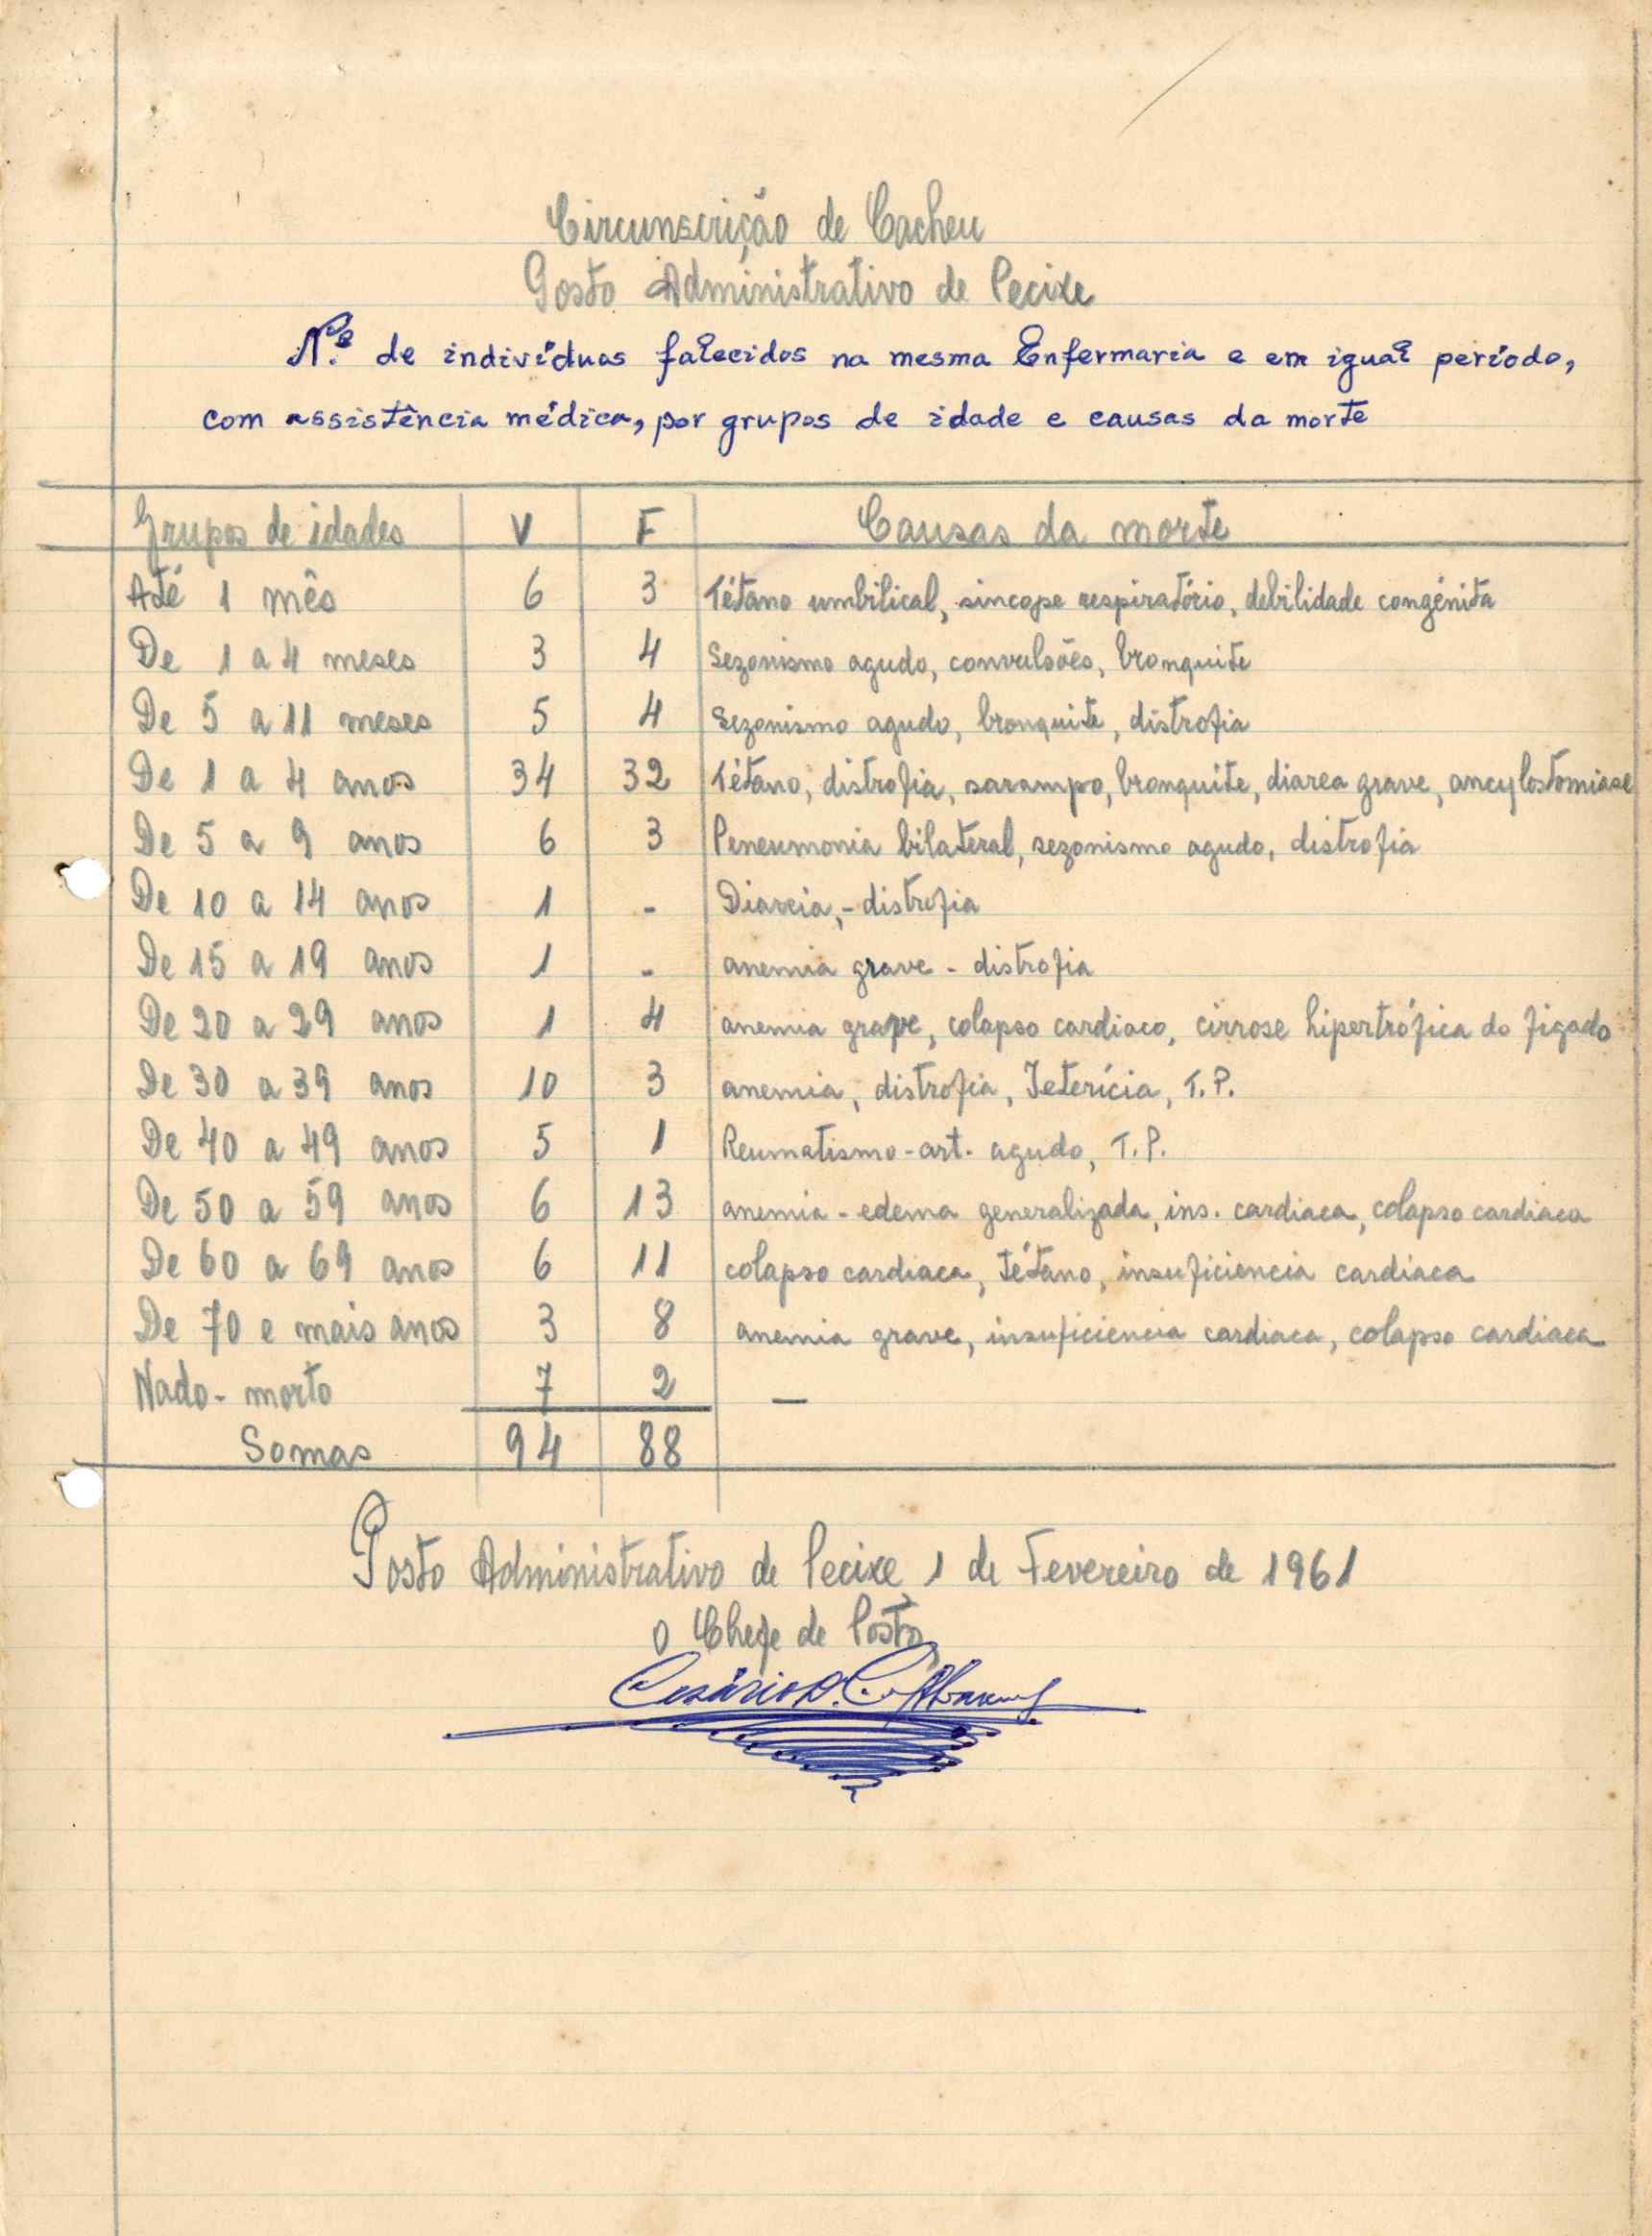 Circunscrição de Cacheu
Posto Administrativo de Pecixe
N.º de indivíduos falecidos na mesma Enfermaria e em igual período,
com assistência médica, por grupos de idade e causas da morte
Grupos de idades V F Causas da morte
Até 1 mês 6 3 Tétano umbilical, sincope respiratório, debilidade congénita
De 1 a 4 meses 3 4 Sezonismo agudo, convulsões, bronquite
De 5 a 11 meses 5 4 Sezonismo agudo, bronquite, distrofia
De 1 a 4 anos 34 32 Tétano, distrofia, sarampo, bronquite, diarea grave, ancylostomiase
De 5 a 9 anos 6 3 Peneumonia bilateral, sezonismo agudo, distrofia
De 10 a 14 anos 1 - Diareia,- distrofia
De 15 a 19 anos 1 - anemia grave - distrofia
De 20 a 29 anos 1 4 anemia grave, colapso cardiaco, cirrose hipertrófica do figado
De 30 a 39 anos 10 3 anemia, distrofia, Icterícia, T.P.
De 40 a 49 anos 5 1 Reumatismo-art. agudo, T.P.
De 50 a 59 anos 6 13 anemia - edema generalizada, ins. cardiaca, colapso cardiaca
De 60 a 69 anos 6 11 colapso cardiaca, tétano, insuficiencia cardiaca
De 70 e mais anos 3 8 anemia grave, insuficiencia cardiaca, colapso cardiaca
Nado-morto 7 2 —
Somas 94 88
Posto Administrativo de Pecixe 1 de Fevereiro de 1961
O Chefe de Posto
Cesário D. C.